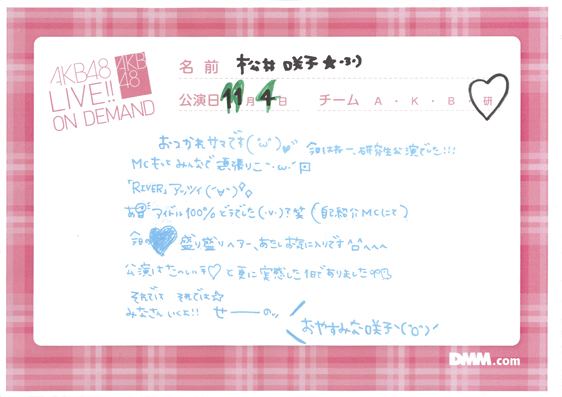 AKB48
LIVE!!
ON DEMAND
AKB
48
名前 松井咲子★・3・)
公演日 11月4日 チーム A・K・B・研
おつかれサマです(´ω`) 今日は研究生公演でした!!!
MCもっとみんなで頑張りこ`・ω・´
「RIVER」アッツイ(´∀`)
アイドル100%どうでした(・∀・)?笑 (自己紹介MCにて)
今日の♥盛り盛りヘアー、あたしお気に入りです^^
公演はたのしい♡と更に実感した1日でありました
それでは それでは☆
みなさんいくよ!! せーのッ
おやすみな咲子
DMM.com